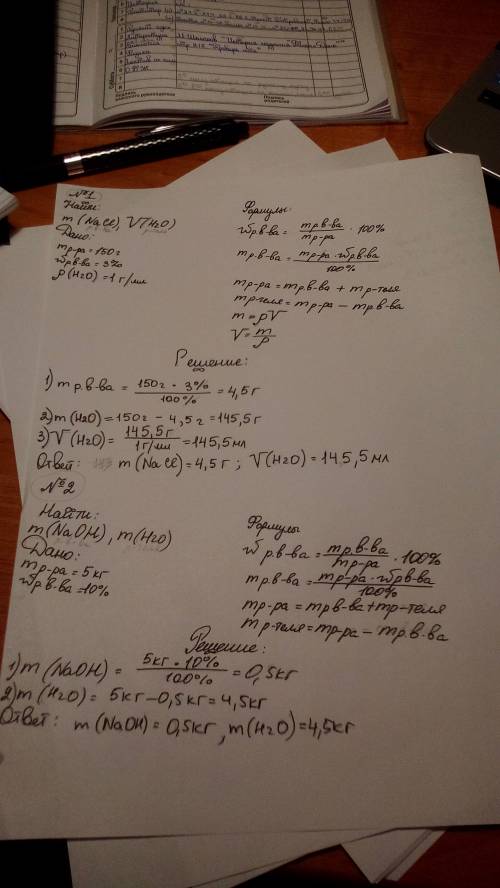 История
№1
Найти:
m (NaCl), V(H2O)
Дано:
mр-ра = 150г
ωр.в-ва = 3%
ρ(H2O)=1 г/мл
Формулы:
ωр.в-ва = mр.в-ва / mр-ра · 100%
mр.в-ва = mр-ра · ωр.в-ва / 100%
mр-ра = mр.в-ва + mр-теля
mр-теля = mр-ра – mр.в-ва
m = ρV
V = m / ρ
Решение:
1) mр.в-ва = 150г · 3% / 100% = 4,5г
2) m(H2O) = 150г – 4,5г = 145,5г
3) V(H2O) = 145,5г / 1г/мл = 145,5мл
Ответ: m(NaCl) = 4,5г ; V(H2O) = 145,5мл
№2
Найти:
m(NaOH), m(H2O)
Дано:
mр-ра = 5кг
ωр.в-ва = 10%
Формулы
ωр.в-ва = mр.в-ва / mр-ра · 100%
mр.в-ва = mр-ра · ωр.в-ва / 100%
mр-ра = mр.в-ва + mр-теля
mр-теля = mр-ра – mр.в-ва
Решение:
1) m(NaOH) = 5кг · 10% / 100% = 0,5кг
2) m(H2O) = 5кг – 0,5кг = 4,5кг
Ответ: m(NaOH) = 0,5кг, m(H2O) = 4,5кг